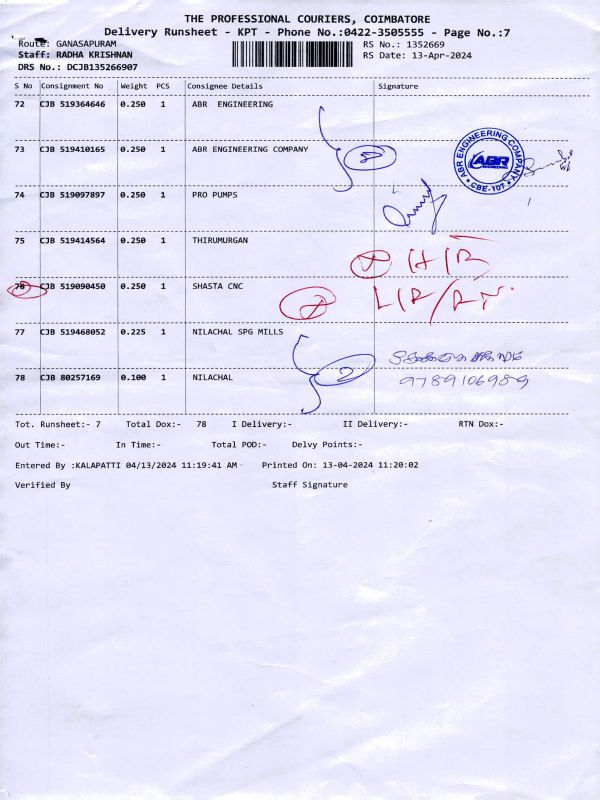 THE PROFESSIONAL COURIERS, COIMBATORE
Delivery Runsheet - KPT - Phone No.:0422-3505555 - Page No.:7
Route: GANASAPURAM
RS No.: 1352669
Staff: RADHA KRISHNAN
RS Date: 13-Apr-2024
DRS No.: DCJB135266907
S No Consignment No Weight PCS Consignee Details Signature
72 CJB 519364646 0.250 1 ABR ENGINEERING
73 CJB 519410165 0.250 1 ABR ENGINEERING COMPANY
ABR ENGINEERING COMPANY
ABR
ENGINEERING
* CBE-107 *
74 CJB 519097897 0.250 1 PRO PUMPS
75 CJB 519414564 0.250 1 THIRUMURGAN
76 CJB 519090450 0.250 1 SHASTA CNC
77 CJB 519468052 0.225 1 NILACHAL SPG MILLS
78 CJB 80257169 0.100 1 NILACHAL
2
9789106989
Tot. Runsheet:- 7 Total Dox:- 78 I Delivery:- II Delivery:- RTN Dox:-
Out Time:- In Time:- Total POD:- Delvy Points:-
Entered By :KALAPATTI 04/13/2024 11:19:41 AM Printed On: 13-04-2024 11:20:02
Verified By Staff Signature